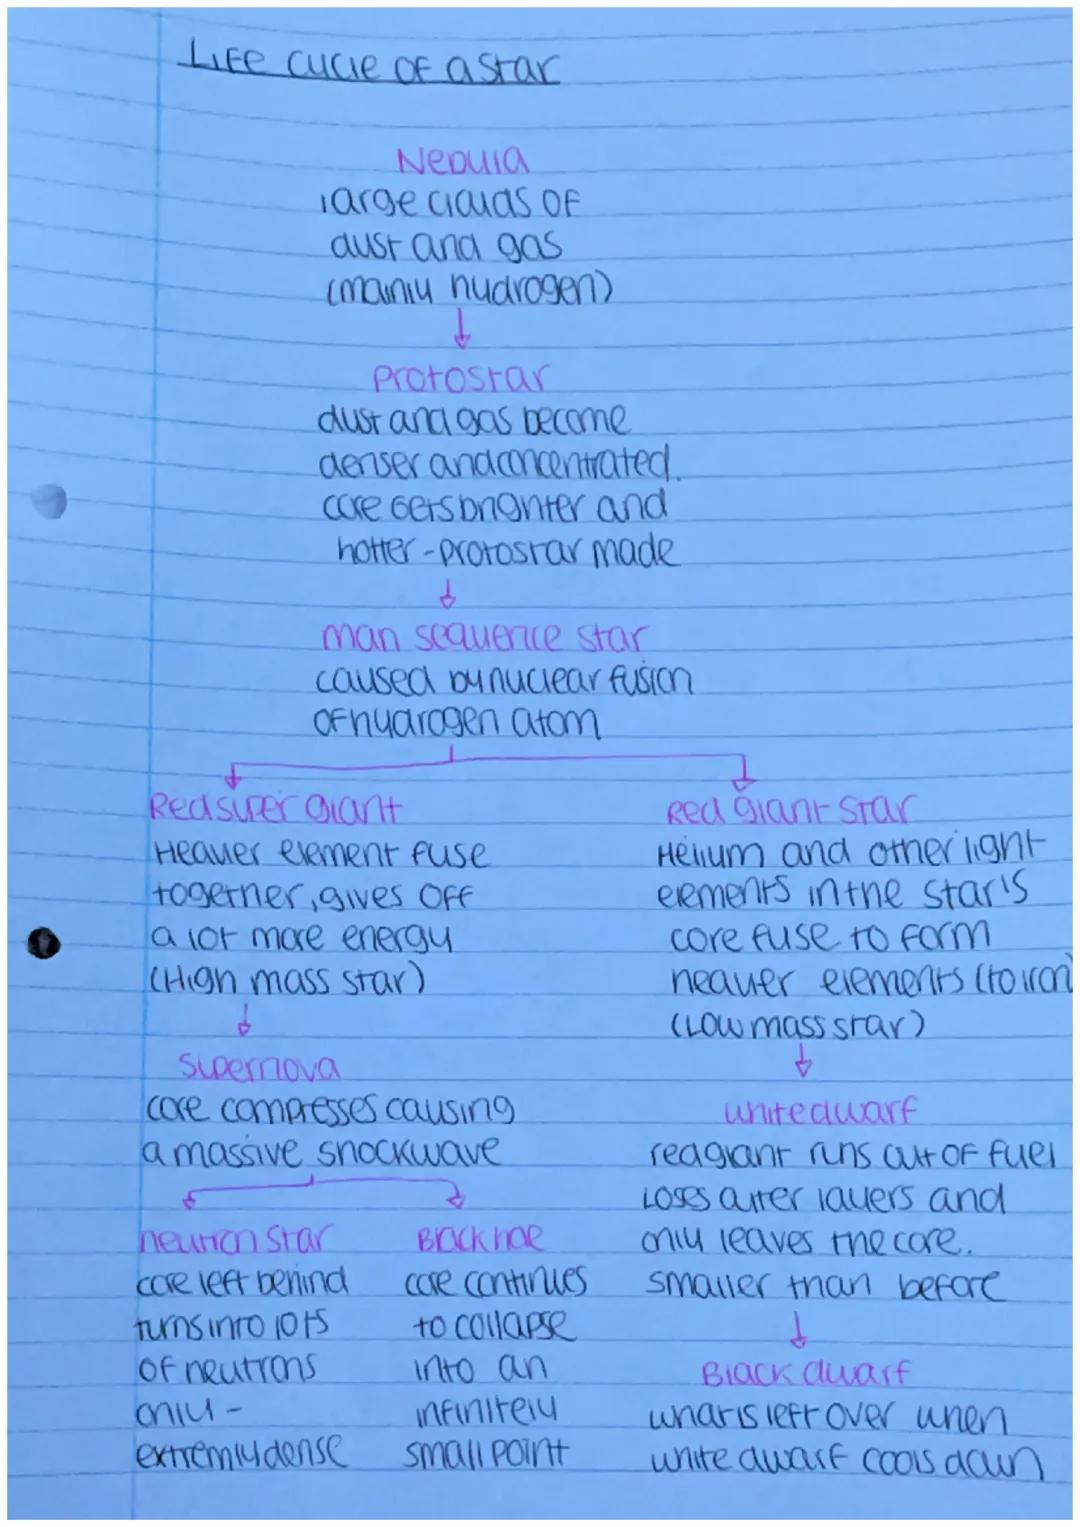 Life cycle of a star
Nebula
large clouds of
dust and gas
(mainly hydrogen)
Protostar
dust and gas become
denser and concentrated.
core gets brighter and
hotter - protostar made
man sequence star
caused by nuclear fusion
of hydrogen atom
Red super giant
Heavier element fuse
together, gives off
a lot more energy
(High mass star)
Supernova
core compresses causing
a massive shockwave
neutron star
core left behind
turns into lots
of neutrons
only -
extremly dense
Black hole
core continues
to collapse
into an
infinitely
small point
Red giant star
Helium and other light
elements in the star's
core fuse to form
heavier elements (to iron)
(Low mass star)
white dwarf
red giant runs out of fuel
Loses outer layers and
only leaves the core.
smaller than before
Black dwarf
what is left over when
white dwarf cools down